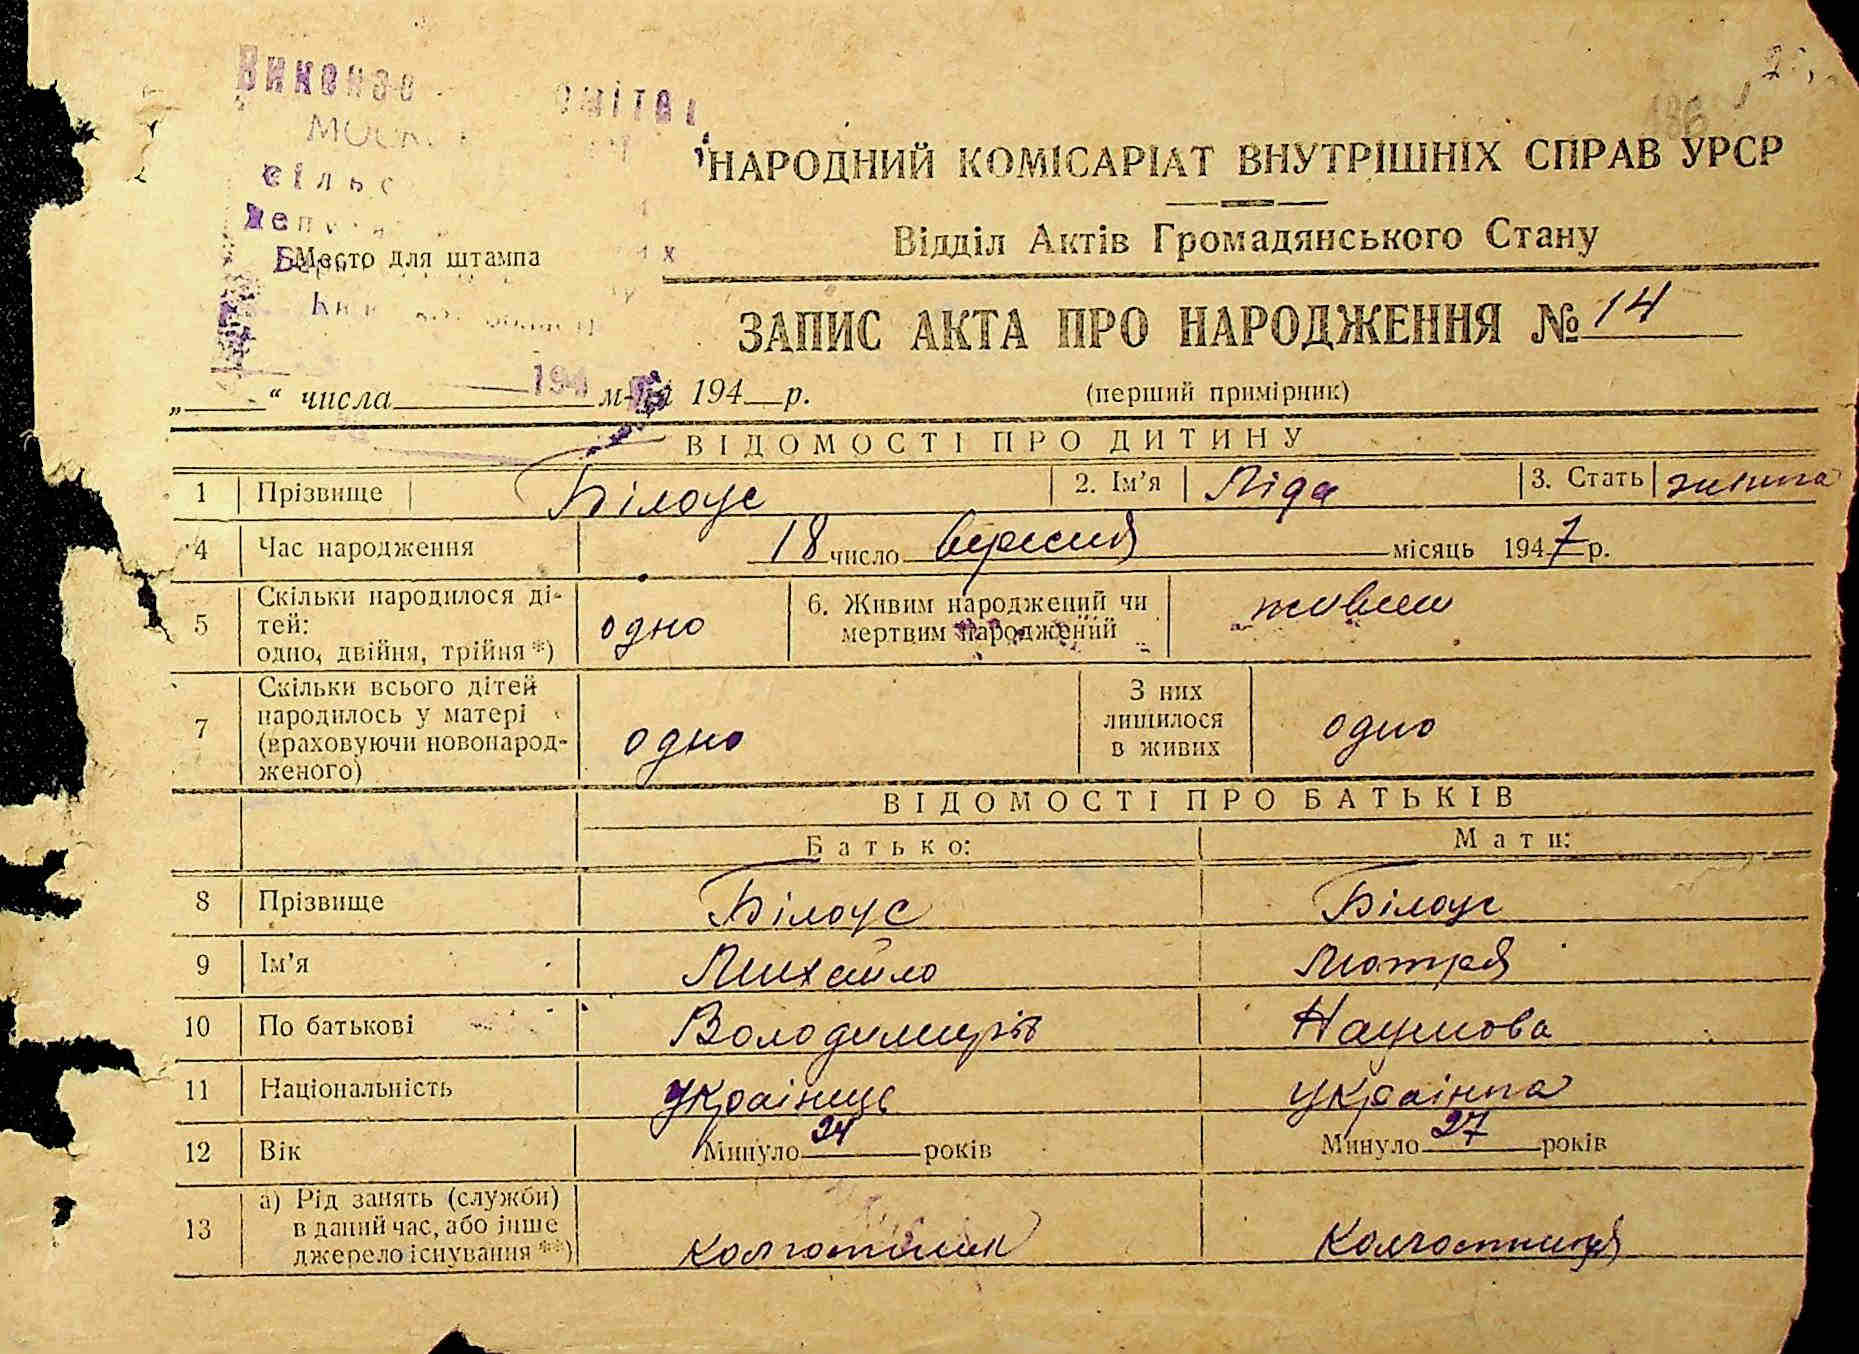 сільс
Место для штампа
НАРОДНИЙ КОМІСАРІАТ ВНУТРІШНІХ СПРАВ УРСР
Відділ Актів Громадянського Стану
ЗАПИС АКТА ПРО НАРОДЖЕННЯ № 14
„ “ числа м-ця 194 р.
(перший примірник)
ВІДОМОСТІ ПРО ДИТИНУ
1 Прізвище Білоус 2. Ім’я Ліда 3. Стать жінка
4 Час народження 18 число вересня місяць 1947 р.
5 Скільки народилося ді-
тей:
одно, двійня, трійня *) одно 6. Живим народжений чи
мертвим народжений живим
7 Скільки всього дітей
народилось у матері
(враховуючи новонарод-
женого) одно З них
лишилося
в живих одно
ВІДОМОСТІ ПРО БАТЬКІВ
Батько: Мати:
8 Прізвище Білоус Білоус
9 Ім’я Михайло Мотря
10 По батькові Володимирів Наумова
11 Національність українець українка
12 Вік Минуло 24 років Минуло 27 років
13 а) Рід занять (служби)
в даний час, або інше
джерело існування **) колгоспник колгоспниця